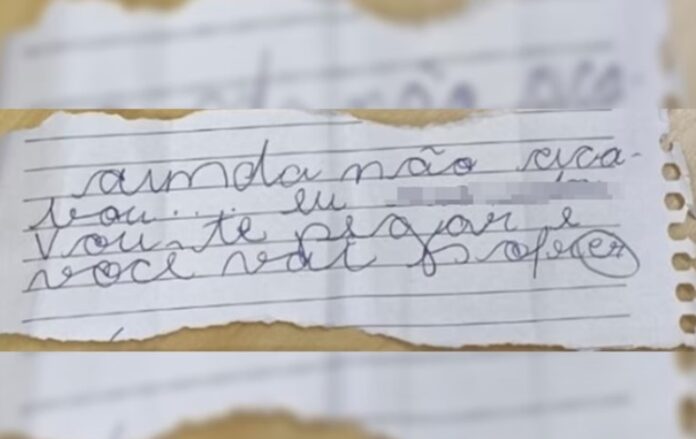 ainda não aca-
bou.... eu
vou te pegar e
você vai sofrer